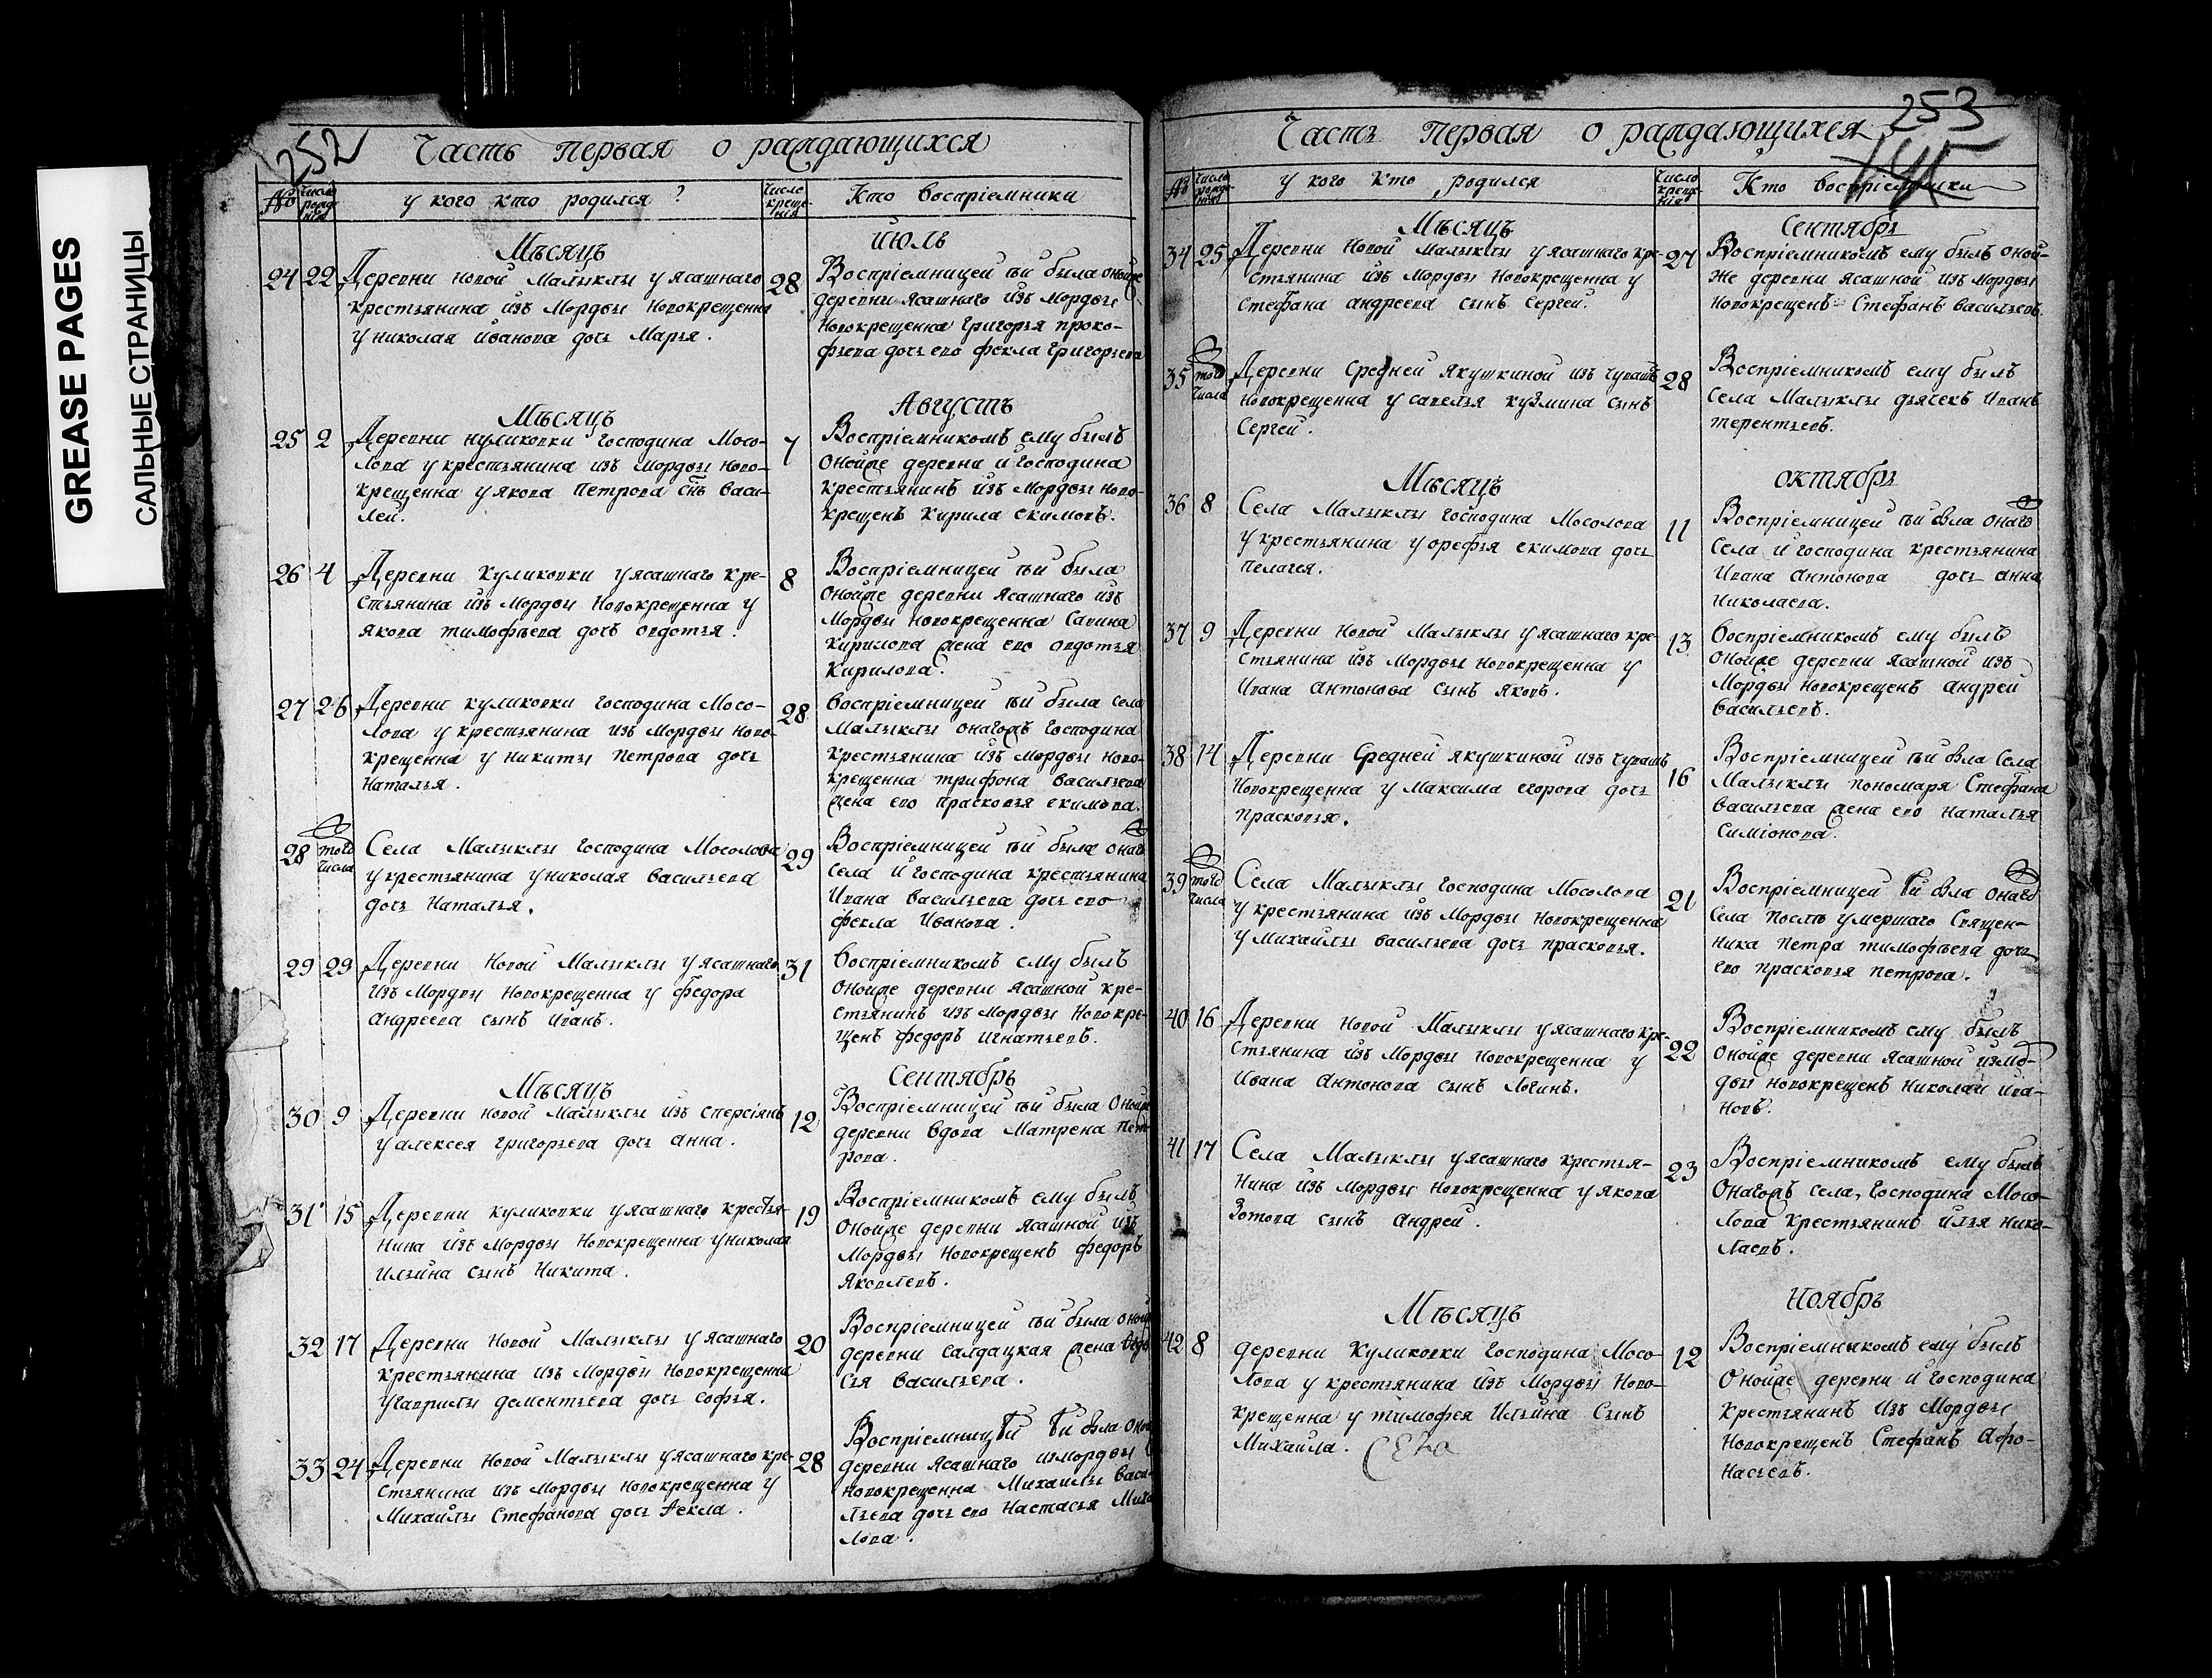 GREASE PAGES
САЛЬНЫЕ СТРАНИЦЫ
252
Часть первая о раждающихся
№
число рожде-нiя
у кого кто родился ?
число креще-нiя
Кто воспрiемники
Мѣсяцъ
Июль
24 22
Деревни новой Малыклы у ясашнаго
крестьянина изъ Мордвы новокрещенна
у николая иванова дочь Марья.
28
Воспрiемницей ѣй была оной же
деревни ясашнаго изъ мордвы
новокрещенна григорья проко-
фьева дочь его фекла григорьева
Мѣсяцъ
Августъ
25 2
Деревни куликовки господина Мосо-
лова у крестьянина изъ мордвы ново-
крещенна у якова петрова снъ васи-
лей.
7
Воспрiемникомъ ему былъ
оной же деревни и господина
крестьянинъ изъ Мордвы ново-
крещенъ кирила екимовъ.
26 4
Деревни куликовки у ясашнаго кре-
стьянина изъ Мордвы новокрещенна у
якова тимофѣева дочь овдотья.
8
Воспрiемницей ѣй была
оной же деревни ясашнаго изъ
Мордвы новокрещенна савина
кирилова жена ево овдотья
кирилова.
27 26
Деревни куликовки господина Мосо-
лова у крестьянина изъ мордвы ново-
крещенна у никиты петрова дочь
наталья.
28
воспрiемницей ѣй была села
малыклы онагожъ господина
крестьянина изъ мордвы ново-
крещенна трифона васильева
жена ево прасковья екимова.
28 того числа
Села Малыклы господина Мосолова
у крестьянина у николая васильева
дочь Наталья.
29
Воспрiемницей ѣй была онаго
села и господина крестьянина
ивана васильева дочь ево
фекла иванова.
29 29
Деревни новой Малыклы у ясашнаго
изъ Мордвы новокрещенна у федора
андреева сынъ иванъ.
31
воспрiемникомъ ему былъ
оной же деревни ясашной кре-
стьянинъ изъ мордвы новокре-
щенъ федоръ игнатьевъ.
Мѣсяцъ
Сентябрь
30 9
Деревни новой малыклы изъ сперсiянъ
у алексея григорьева дочь анна.
12
Воспрiемницей ѣй была оной же
деревни вдова матрена пет-
рова.
31 15
Деревни куликовки у ясашнаго крестья-
нина изъ мордвы новокрещенна у николая
ильина сынъ никита.
19
Воспрiемникомъ ему былъ
оной же деревни ясашной изъ
Мордвы новокрещенъ федоръ
яковлевъ.
32 17
Деревни новой Малыклы у ясашнаго
крестьянина изъ мордвы новокрещенна
у гаврилы дементьева дочь софья.
20
Воспрiемницей ѣй была оной
деревни салдацкая жена
васильева.
33 24
Деревни новой малыклы у ясашнаго кре-
стьянина изъ мордвы новокрещенна у
Михаилы стефанова дочь фекла.
28
Воспрiемницѣй ѣй была оной
деревни ясашнаго измордвы
новокрещенна михаилы васи-
льева дочь ево настасья миха
лова.
253
Часть первая о раждающихся
№
число рожде-нiя
у кого кто родился
число креще-нiя
Кто воспрiемники
Мѣсяцъ
Сентябрь
34 25
Деревни новой малыклы у ясашнаго кре-
стьянина изъ мордвы новокрещенна у
стефана андреева сынъ сергей.
27
Воспрiемникомъ ему былъ оной-
же деревни ясашной изъ мордвы
новокрещенъ стефанъ васильевъ.
35 того числа
Деревни средней якушкиной изъ чувашъ
новокрещенна у савелья кузмина сынъ
сергей.
28
Воспрiемникомъ ему былъ
села малыклы дьячекъ иванъ
терентьевъ.
Мѣсяцъ
октябрь
36 8
Села Малыклы господина Мосолова
у крестьянина у орефья екимова дочь
пелагея.
11
Воспрiемницей ѣй была онаго
села и господина крестьянина
ивана антонова дочь анна
николаева.
37 9
Деревни новой малыклы у ясашнаго кре-
стьянина изъ Мордвы новокрещенна у
ивана антонова сынъ яковъ.
13
воспрiемникомъ ему былъ
оной же деревни ясашной изъ
Мордвы новокрещенъ андрей
васильевъ.
38 14
Деревни средней якушкиной изъ чувашъ
новокрещенна у максима егорова дочь
прасковья.
16
Воспрiемницей ѣй была села
малыклы пономаря стефана
васильева жена ево наталья
симiонова.
39 того числа
Села Малыклы господина Мосолова
у крестьянина изъ мордвы новокрещенна
у михаилы васильева дочь прасковья.
21
Воспрiемницей ѣй была онаго
села послѣ умершаго священ-
ника петра тимофѣева дочь
ево прасковья петрова.
40 16
Деревни новой Малыклы у ясашнаго кре-
стьянина изъ Мордвы новокрещенна у
ивана антонова сынъ логинъ.
22
Воспрiемникомъ ему былъ
оной же деревни ясашной измо-
двы новокрещенъ николай ива-
новъ.
41 17
Села Малыклы у ясашнаго крестья-
нина изъ мордвы новокрещенна у якова
зотова сынъ андрей.
23
Воспрiемникомъ ему былъ
онагожъ села, господина Мосо-
лова крестьянинъ илья нико-
лаевъ.
Мѣсяцъ
Ноябрь
42 8
деревни куликовки господина Мосо-
лова у крестьянина изъ мордвы ново-
крещенна у тимофея ильина сынъ
михаила.
12
Воспрiемникомъ ему былъ
оной же деревни и господина
крестьянинъ изъ мордвы
новокрещенъ стефанъ афо-
насьевъ.